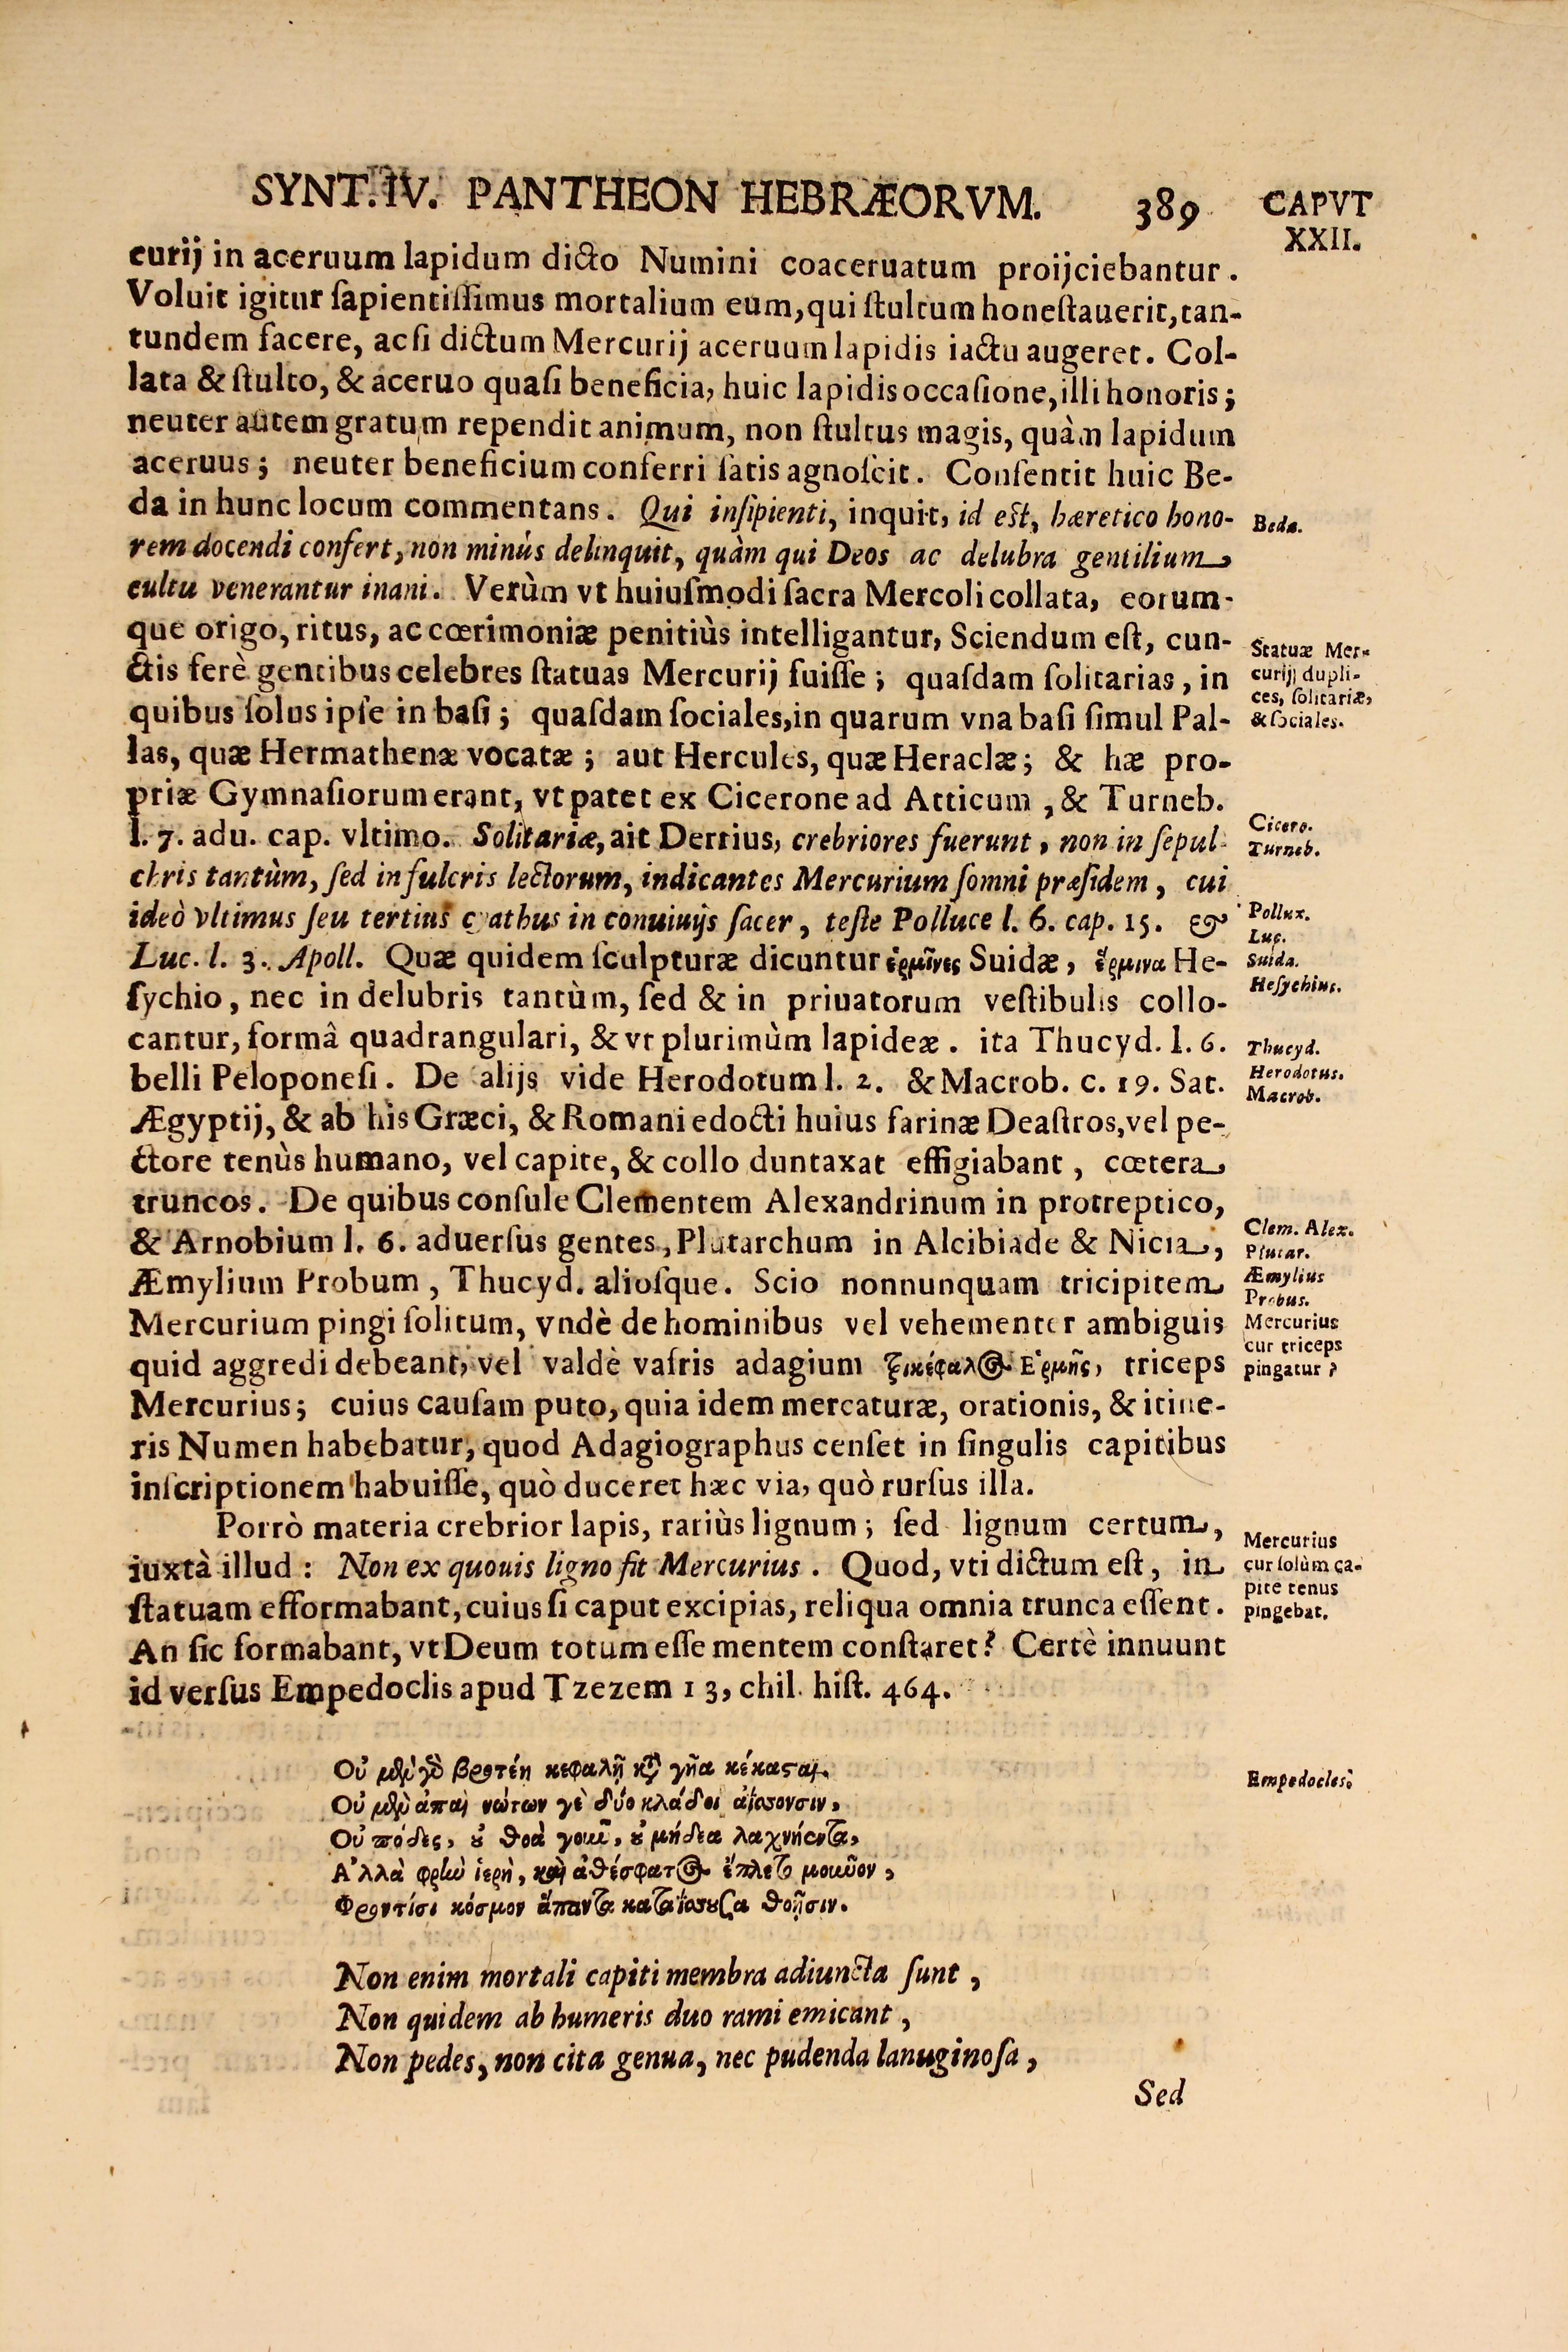 SYNT. IV. PANTHEON HEBRÆORVM. 389 CAPVT
XXII.
curij in aceruum lapidum dicto Numini coaceruatum proijciebantur.
Voluit igitur ſapientiſſimus mortalium eum, qui ſtultum honeſtauerit, tan-
tundem facere, ac ſi dictum Mercurij aceruum lapidis iactu augeret. Col-
lata & ſtulto, & aceruo quaſi beneficia, huic lapidis occaſione, illi honoris;
neuter autem gratum rependit animum, non ſtultus magis, quàm lapidum
aceruus; neuter beneficium conferri ſatis agnoſcit. Conſentit huic Be-
da in hunc locum commentans. Qui inſipienti, inquit, id eſt, hæretico hono-
Beda.
rem docendi confert, non minùs delinquit, quàm qui Deos ac delubra gentilium
cultu venerantur inani. Verùm vt huiuſmodi ſacra Mercoli collata, eorum-
que origo, ritus, ac cœrimoniæ penitiùs intelligantur, Sciendum eſt, cun-
ctis ferè gentibus celebres ſtatuas Mercurij fuiſſe; quaſdam ſolitarias, in
quibus ſolus ipſe in baſi; quaſdam ſociales, in quarum vna baſi ſimul Pal-
Statuæ Mer-
curij dupli-
ces, ſolitariæ,
& ſociales.
las, quæ Hermathenæ vocatæ; aut Hercules, quæ Heraclæ; & hæ pro-
priæ Gymnaſiorum erant, vt patet ex Cicerone ad Atticum, & Turneb.
l. 7. adu. cap. vltimo. Solitariæ, ait Derrius, crebriores fuerunt, non in ſepul-
Cicero.
Turneb.
chris tantùm, ſed in fulcris lectorum, indicantes Mercurium ſomni præſidem, cui
ideò vltimus ſeu tertius cyathus in conuiuijs ſacer, teſte Polluce l. 6. cap. 15. &
Luc. l. 3. Apoll. Quæ quidem ſculpturæ dicuntur ἑρμῖνες Suidæ, ἕρμινα He-
Pollux.
Luc.
Suida.
Heſychius.
ſychio, nec in delubris tantùm, ſed & in priuatorum veſtibulis collo-
cantur, formâ quadrangulari, & vt plurimùm lapideæ. ita Thucyd. l. 6.
belli Peloponeſi. De alijs vide Herodotum l. 2. & Macrob. c. 19. Sat.
Thucyd.
Herodotus.
Macrob.
Ægyptij, & ab his Græci, & Romani edocti huius farinæ Deaſtros, vel pe-
ctore tenùs humano, vel capite, & collo duntaxat effigiabant, cœtera
truncos. De quibus conſule Clementem Alexandrinum in protreptico,
& Arnobium l. 6. aduerſus gentes, Plutarchum in Alcibiade & Nicia,
Æmylium Probum, Thucyd. alioſque. Scio nonnunquam tricipitem
Clem. Alex.
Plutar.
Æmylius
Probus.
Mercurium pingi ſolitum, vndè de hominibus vel vehementer ambiguis
quid aggredi debeant, vel valdè vafris adagium τρικέφαλος Ἑρμῆς, triceps
Mercurius
cur triceps
pingatur?
Mercurius; cuius cauſam puto, quia idem mercaturæ, orationis, & itine-
ris Numen habebatur, quod Adagiographus cenſet in ſingulis capitibus
inſcriptionem habuiſſe, quò duceret hæc via, quò rurſus illa.
Porrò materia crebrior lapis, rariùs lignum; ſed lignum certum,
iuxtà illud: Non ex quouis ligno fit Mercurius. Quod, vti dictum eſt, in
ſtatuam efformabant, cuius ſi caput excipias, reliqua omnia trunca eſſent.
Mercurius
cur ſolùm ca-
pite tenus
pingebat.
An ſic formabant, vt Deum totum eſſe mentem conſtaret? Certè innuunt
id verſus Empedoclis apud Tzezem 13, chil. hiſt. 464.
Οὐ μὲν γὸ βροτέη κεφαλῇ κατὰ γῆα κέκασαι.
Empedocles.
Οὐ μὲν ἀπαὶ νώτων γὲ δύο κλάδοι ἀΐσσονσιν,
Οὐ πόδες, οὐ θοὰ γουῖ, οὐ μήδεα λαχνήεντα,
Ἀλλὰ φρὴν ἱερὴ, καὶ ἀθέσφατος ἔπλετο μουῦον,
Φροντίσι κόσμον ἅπαντα καταΐσουσα θοῇσιν.
Non enim mortali capiti membra adiuncta ſunt,
Non quidem ab humeris duo rami emicant,
Non pedes, non cita genua, nec pudenda lanuginoſa,
Sed